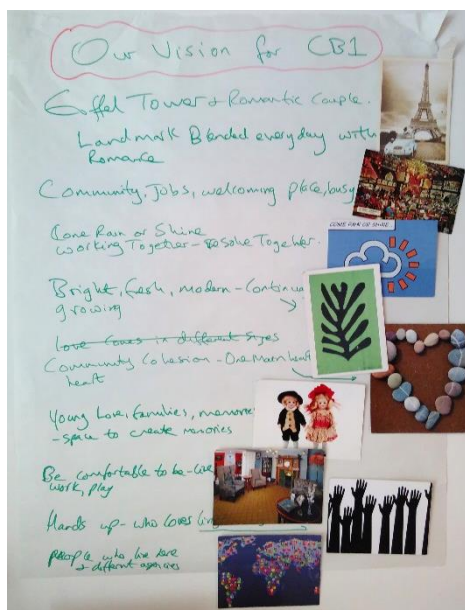 Our Vision for CB1
Eiffel Tower & Romantic Couple.
Landmark Blended everyday with
Romance
Community, Jobs, welcoming place, busy
COME RAIN OR SHINE
Come Rain or Shine
Working Together - resolve Together.
Bright, fresh, modern - continua
growing
Love comes in different sizes
Community Cohesion - One Main heart
heart
Young Love, families, memories
- space to create memories
Be comfortable to be - live
work, play
Hands up - who loves
people who live here
& different agencies